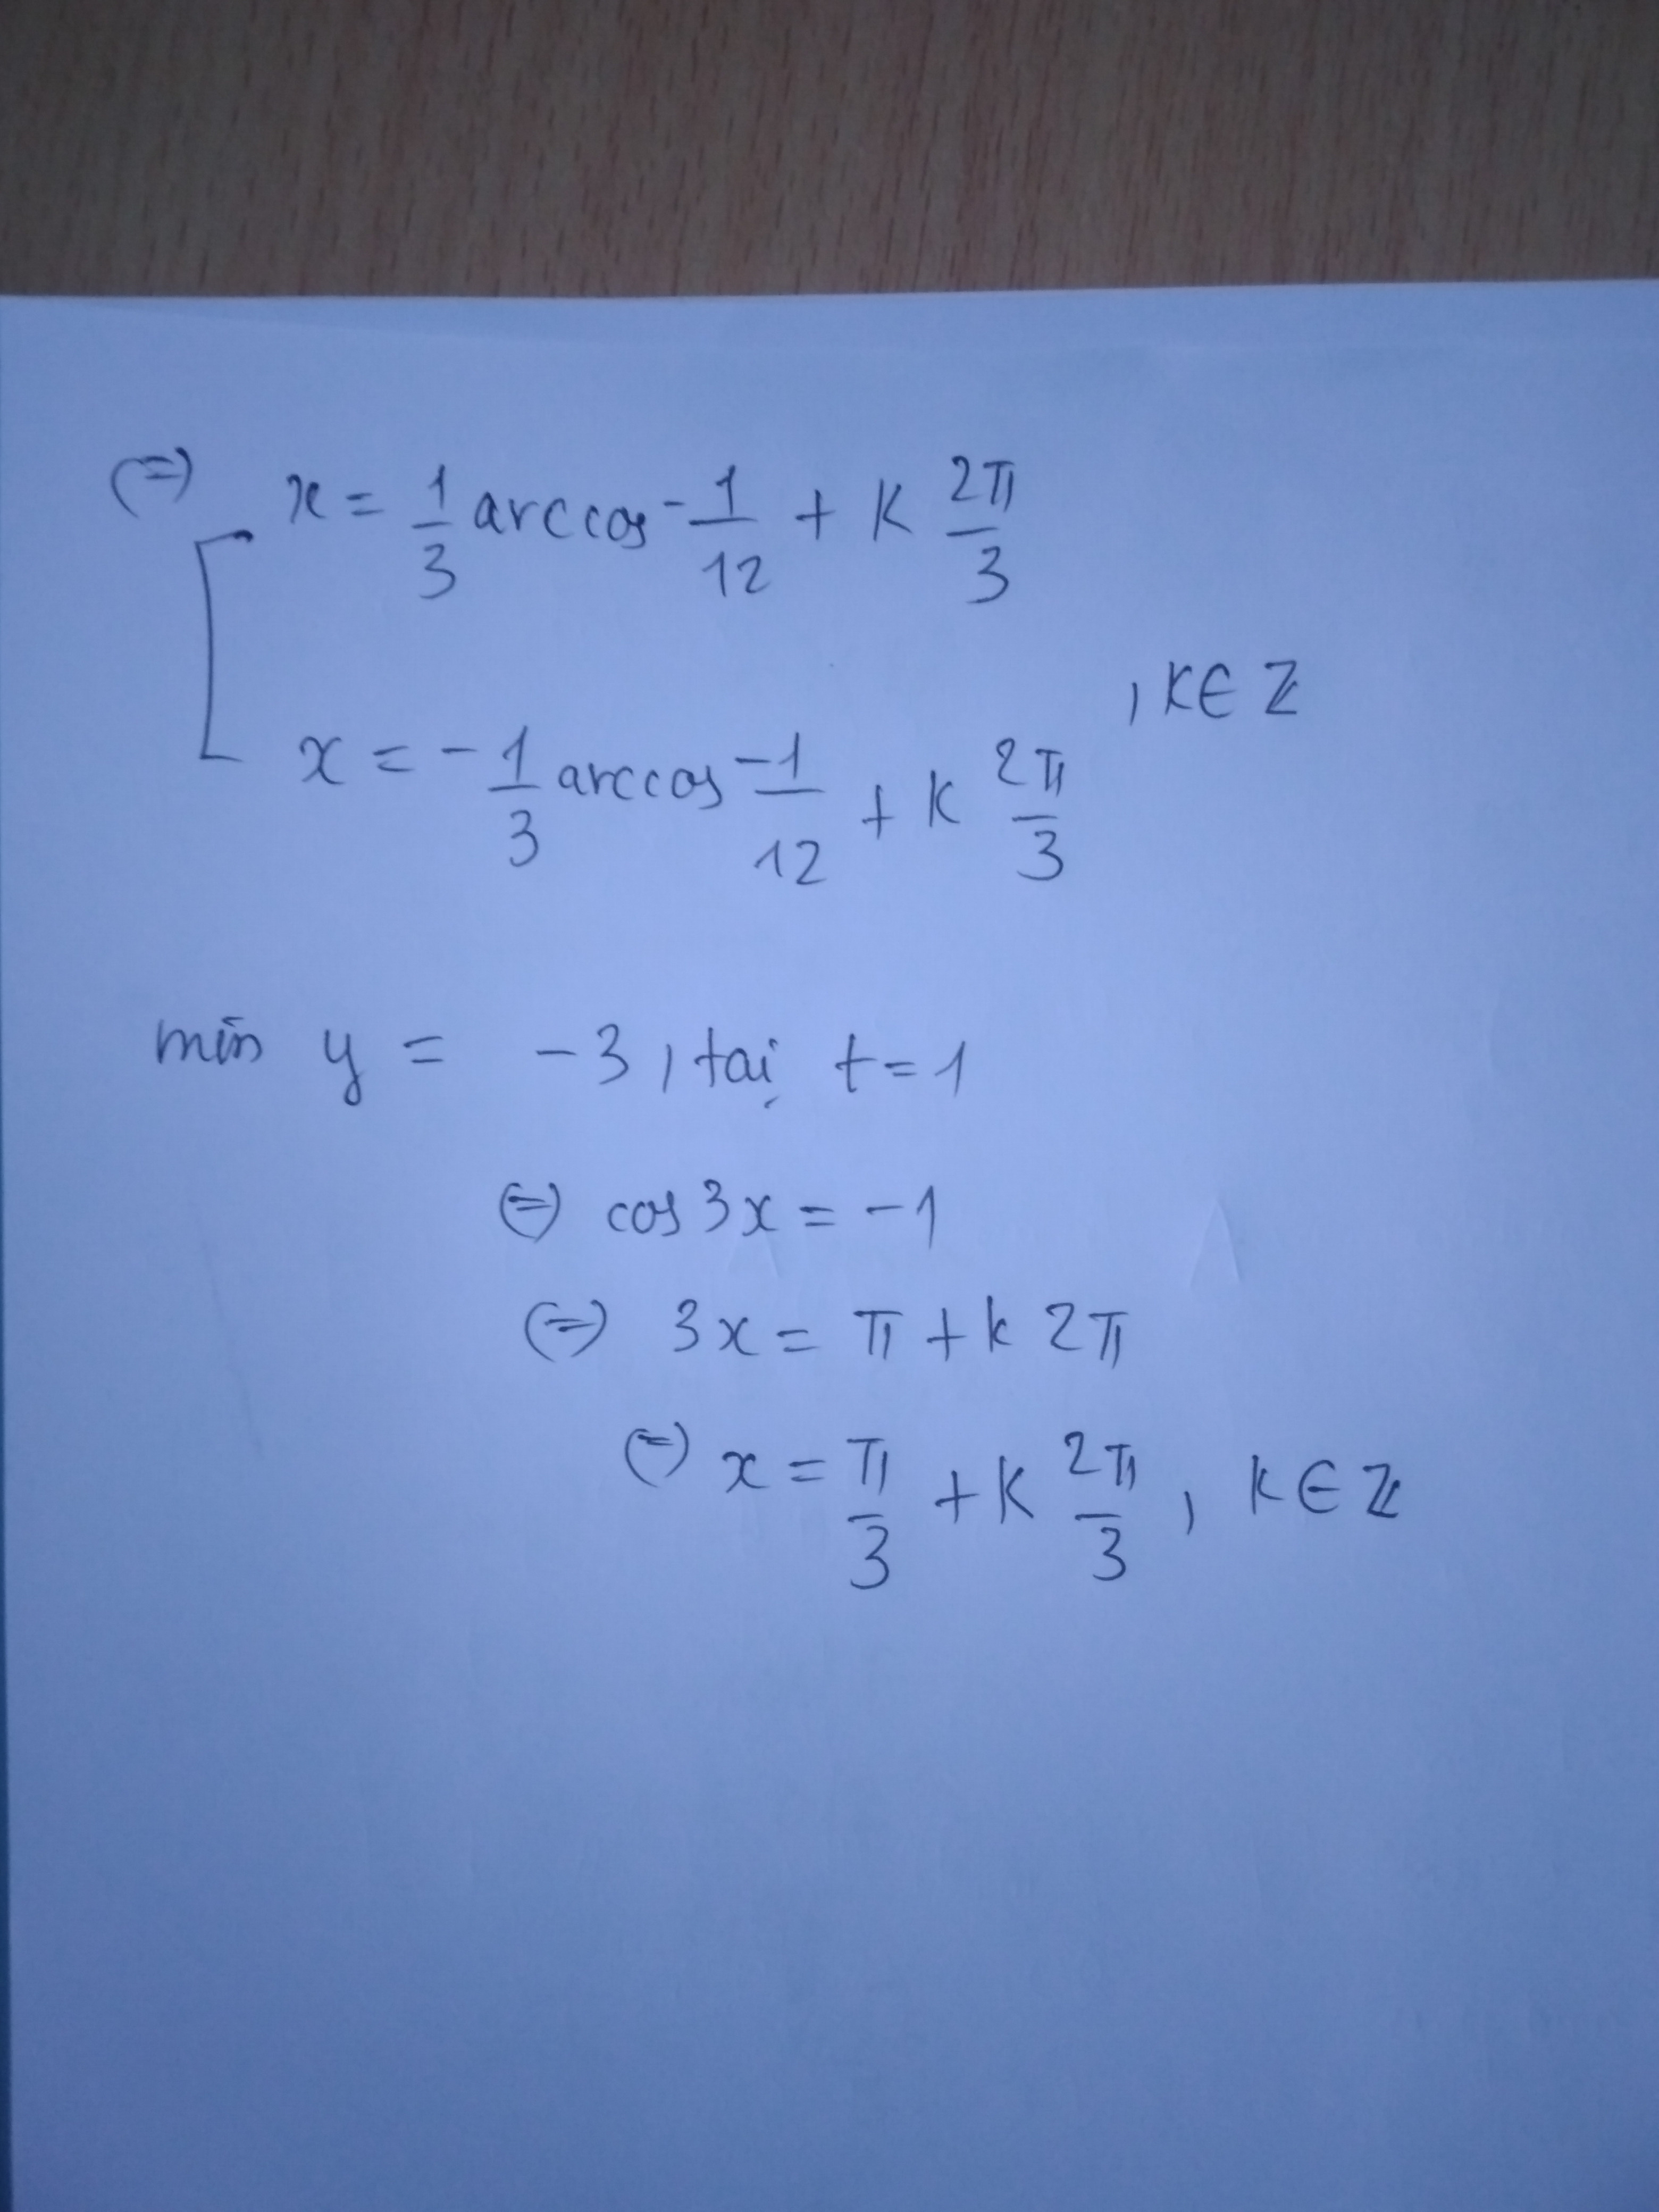 (=) x = 1/3 arccos -1/12 + k 2π/3
x = -1/3 arccos -1/12 + k 2π/3 , k∈Z
min y = -3, tại t=1
(=) cos3x = -1
(=) 3x = π + k2π
(=) x = π/3 + k 2π/3 , k∈Z